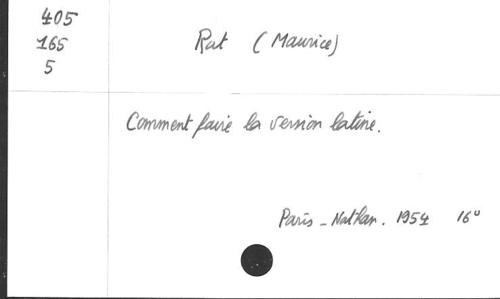 405
165
5
Rat (Maurice)
Comment faire la version latine.
Paris - Nathan. 1954 16°